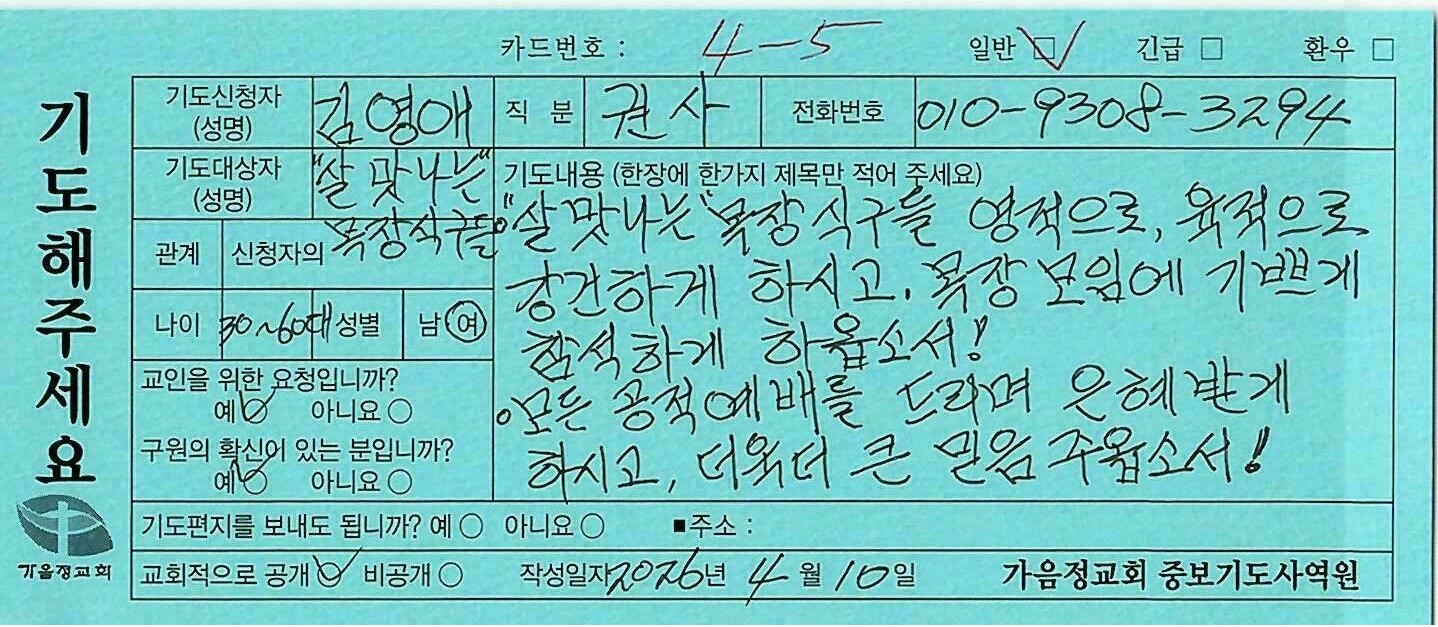 카드번호 : 4-5 일반 ☑ 긴급 □ 환우 □
기도해주세요
기도신청자 (성명) 김영애 직 분 권사 전화번호 010-9308-3294
기도대상자 (성명) "살맛나는" 목장식구들
기도내용 (한장에 한가지 제목만 적어 주세요)
관계 신청자의
나이 30~60대 성별 남 여
◦"살맛나는" 목장식구들 영적으로, 육적으로
강건하게 하시고, 목장모임에 기쁘게
참석하게 하옵소서!
◦모든 공적예배를 드리며 은혜받게
하시고, 더욱더 큰 믿음 주옵소서!
교인을 위한 요청입니까?
예 ○ 아니요 ○
구원의 확신이 있는 분입니까?
예 ○ 아니요 ○
기도편지를 보내도 됩니까? 예 ○ 아니요 ○ ■주소 :
교회적으로 공개 ○ 비공개 ○ 작성일자 2026년 4월 10일 가음정교회 중보기도사역원
가음정교회